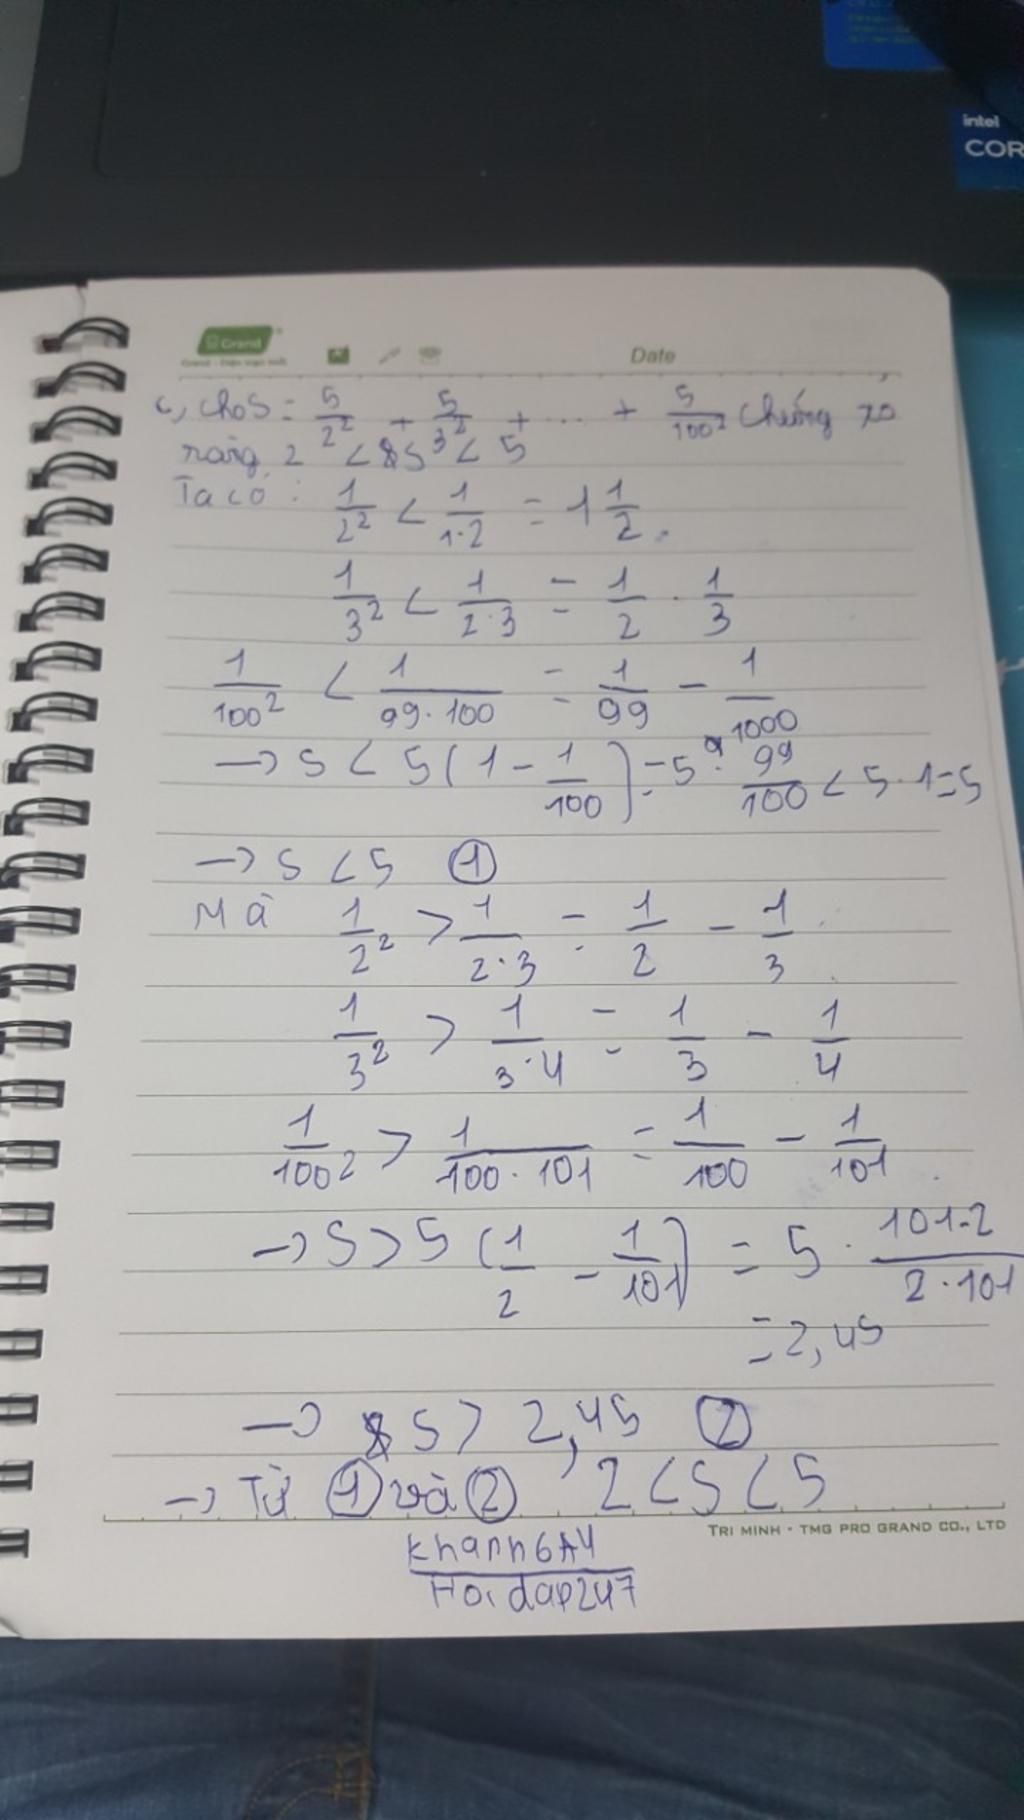 intel
COR
Grand
Date
c, cho S = 5/2² + 5/3² + ... + 5/100² chứng tỏ
rằng 2 < S < 5
Ta có : 1/2² < 1/1·2 = 1 1/2
1/3² < 1/2·3 = 1/2 · 1/3
1/100² < 1/99·100 = 1/99 - 1/1000
→ S < 5(1 - 1/100) = 5 · 99/100 < 5·1=5
→ S < 5 ①
Mà 1/2² > 1/2·3 = 1/2 - 1/3
1/3² > 1/3·4 = 1/3 - 1/4
1/100² > 1/100·101 = 1/100 - 1/101
→ S > 5 (1/2 - 1/101) = 5 · 101-2/2·101
= 2,45
→ S > 2,45 ②
→ Từ ① và ② 2 < S < 5
TRI MINH - TMG PRO GRAND CO., LTD
Khanh6A4
Hoidap247